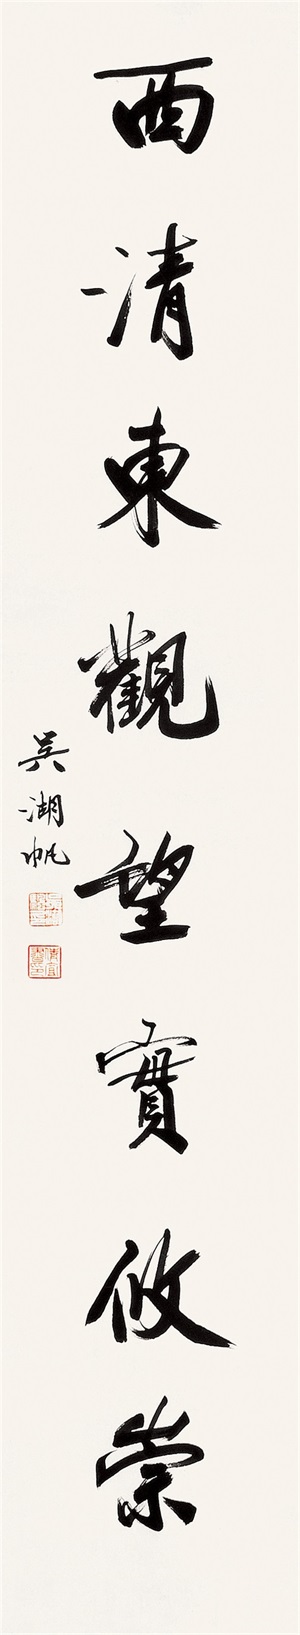 西清東觀望實攸崇
吳湖帆